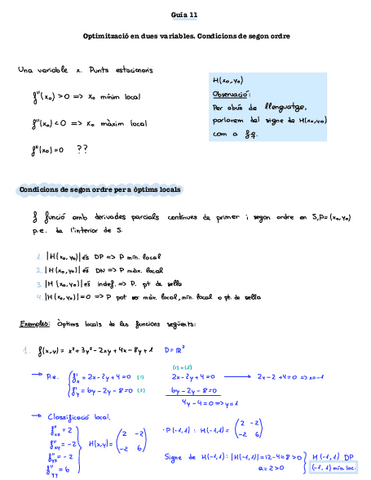 Guía 11
Optimització en dues variables. Condicions de segon ordre
Una variable x. Punts estacionaris
f''(x₀) > 0 => x₀ mínim local
f''(x₀) < 0 => x₀ màxim local
f''(x₀) = 0 ??
H(x₀,y₀)
Observació:
Per abús de llenguatge,
parlarem del signe de H(x₀,y₀)
com a f.q.
Condicions de segon ordre per a òptims locals
f funció amb derivades parcials contínues de primer i segon ordre en S, P=(x₀,y₀)
p.e. de l'interior de S.
1. |H(x₀,y₀)| és DP => P mín. local
2. |H(x₀,y₀)| és DN => P màx. local
3. |H(x₀,y₀)| és indef. => P. pt de sella
4. |H(x₀,y₀)| = 0 => P pot ser màx. local, mín. local o pt. de sella
Exemples: Òptims locals de les funcions següents:
1. f(x,y) = x² + 3y² - 2xy + 4x - 8y + 1 D = ℝ²
→ P.e. { f'x = 2x - 2y + 4 = 0 (1)
f'y = 6y - 2x - 8 = 0 (2)
(1)+(2)
2x - 2y + 4 = 0 → 2x - 2 + 4 = 0 => x = -1
6y - 2x - 8 = 0
4y - 4 = 0 => y = 1
→ Classificació local
f''xx = 2
f''xy = -2
f''yx = -2
f''yy = 6
H(x,y) = ( 2 -2
-2 6 )
· P(-1,1) : H(-1,1) = ( 2 -2
-2 6 )
Signe de H(-1,1) : |H(-1,1)| = 12 - 4 = 8 > 0
a = 2 > 0
} H(-1,1) DP
(-1,1) mín. loc.